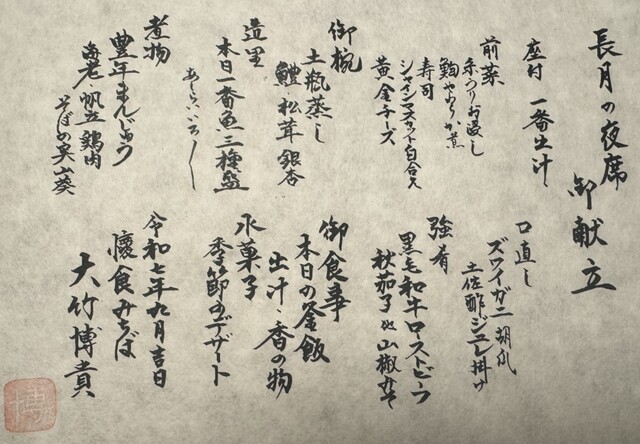 長月の夜席
御献立
座付 一番出汁
前菜
糸うりお浸し
鞠やわらか煮
寿司
シャインマスカット白合え
黄金チーズ
御椀
土瓶蒸し
鱧・松茸 銀杏
造里
本日一番魚三種盛
あしらいいろいろ
煮物
豊年まんじゅう
海老・帆立 鶏肉
そばの実 山葵
口直し
ズワイガニ 胡瓜
土佐酢ジュレ掛け
強肴
黒毛和牛ローストビーフ
秋茄子 山椒みそ
御食事
本日の釜飯
出汁・香の物
水菓子
季節のデザート
令和七年九月吉日
懐食みちば
大竹博貴
博